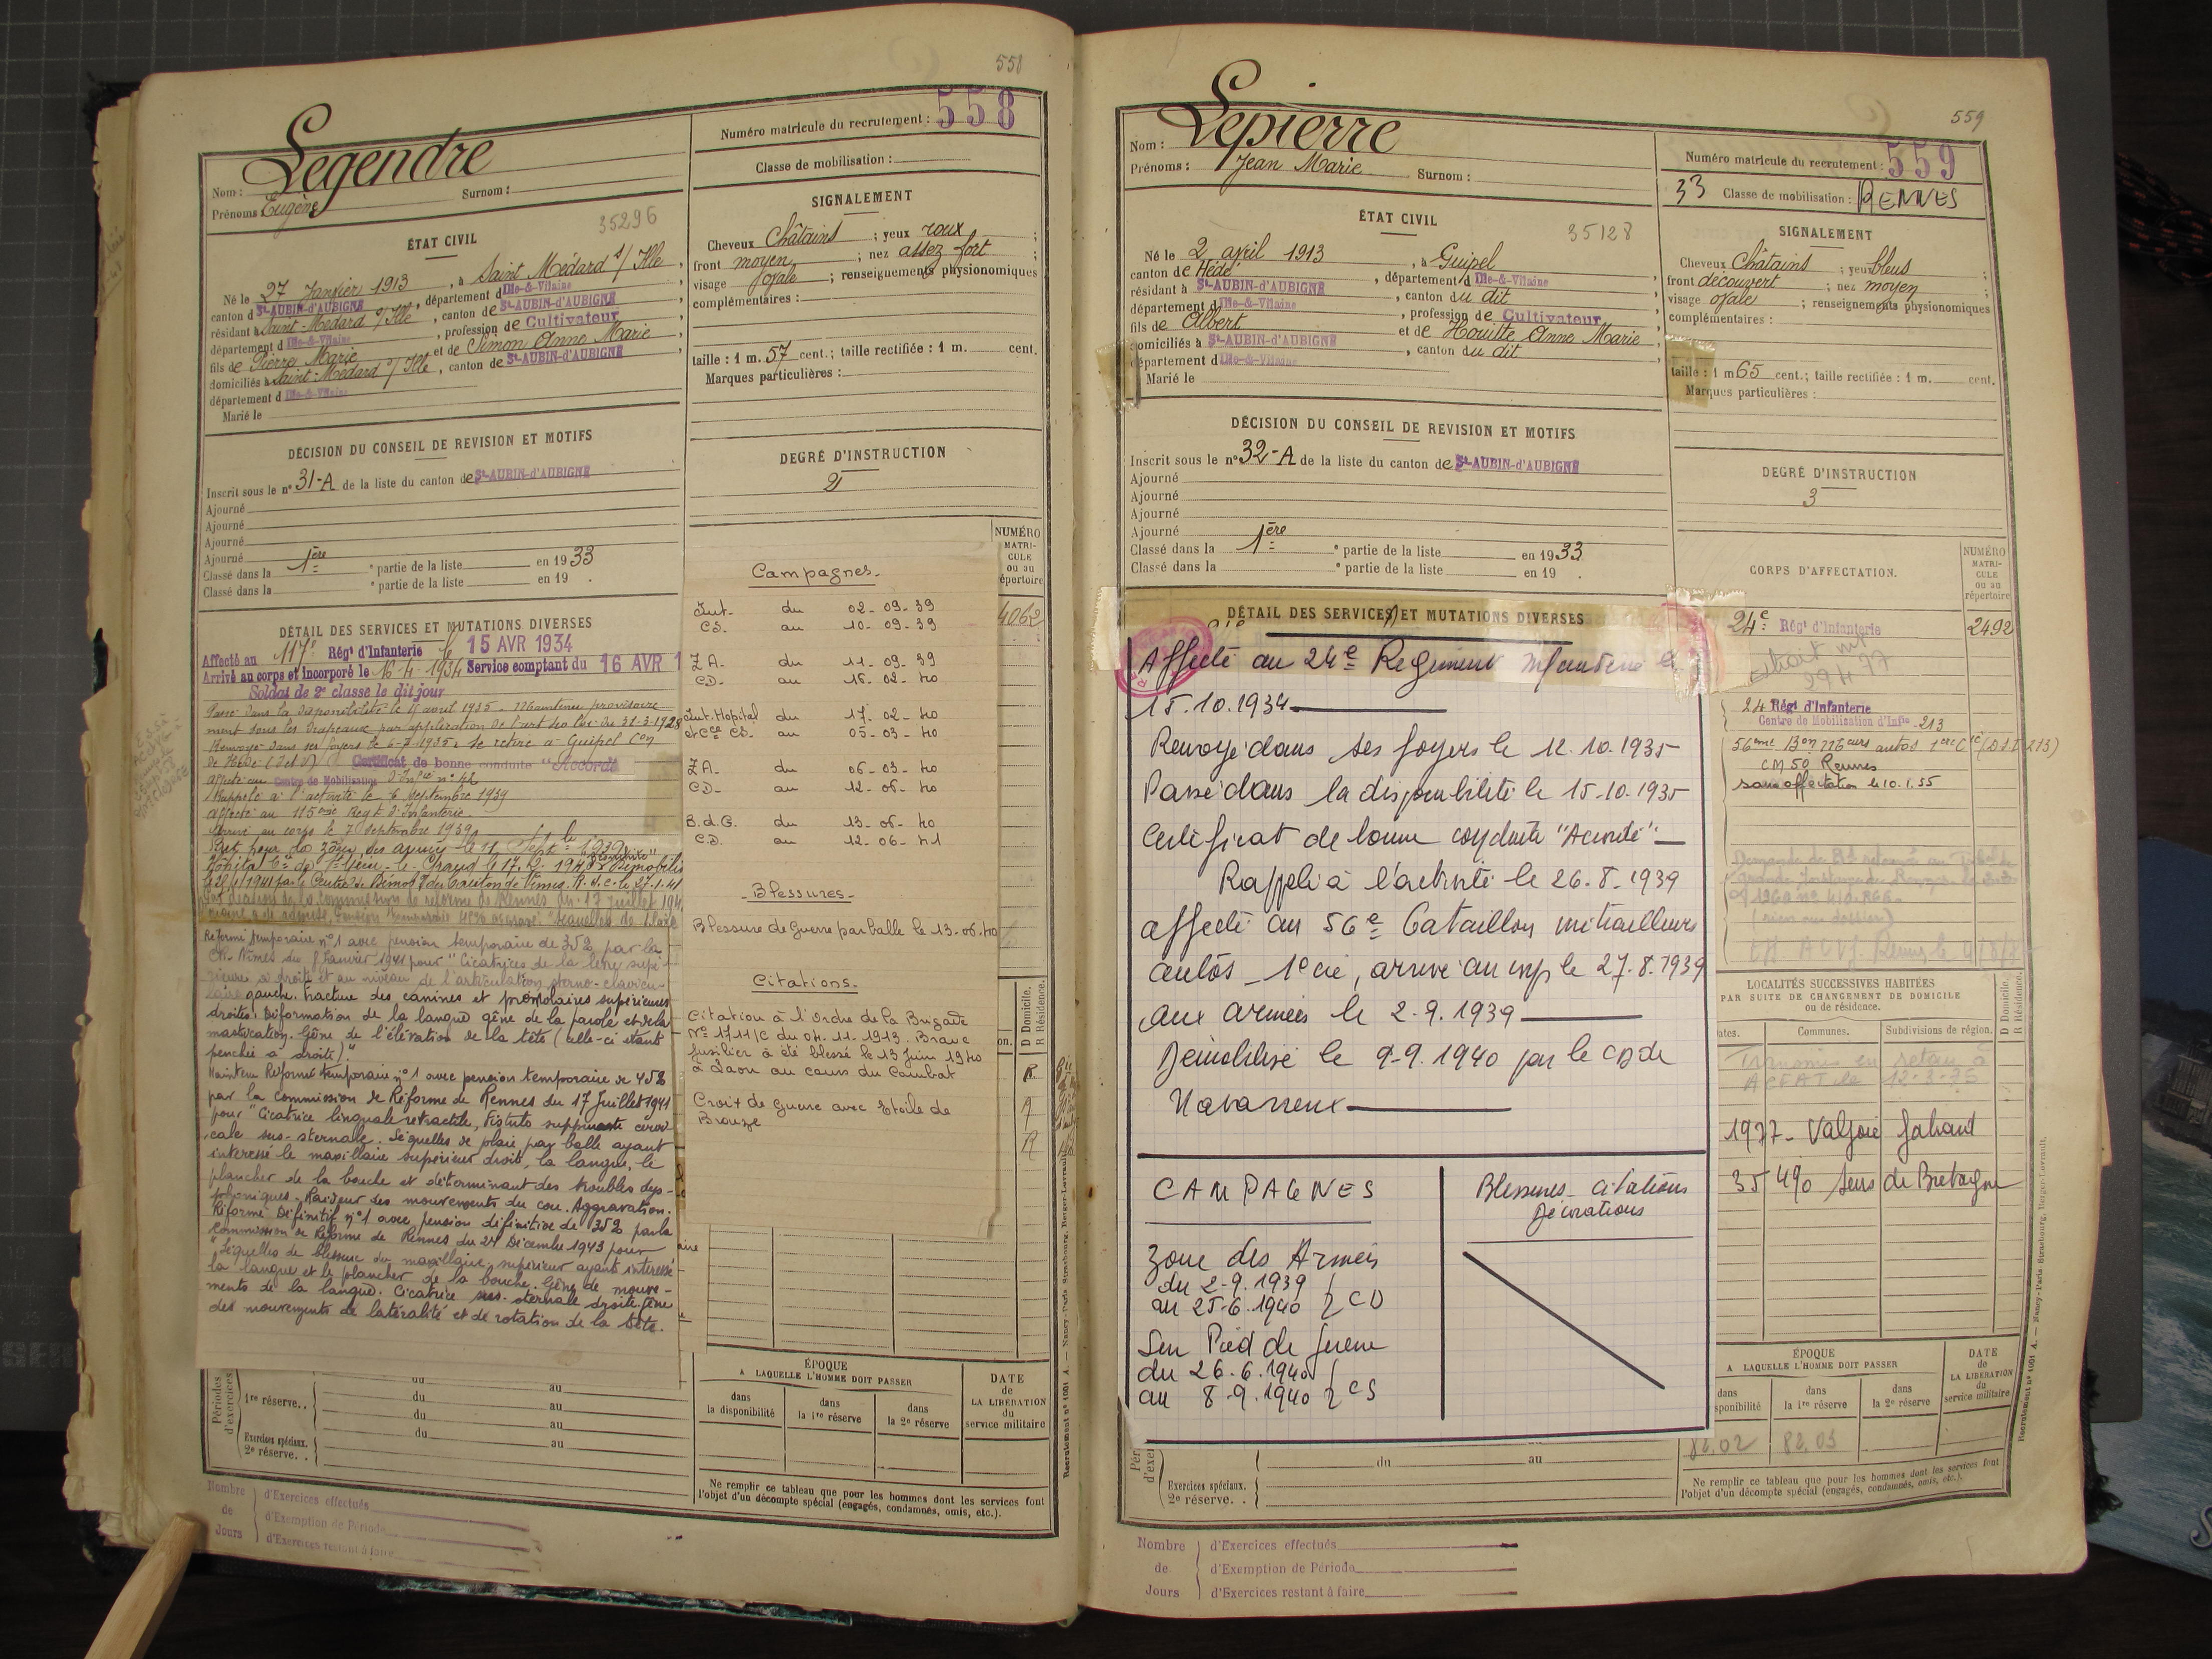 551
Legendre
Nom :
Prénoms Eugène Surnom :
35296
ÉTAT CIVIL
Né le 27 Janvier 1913, à Saint Médard s/ Ille,
canton d St-AUBIN-d'AUBIGNÉ, département d Ille-&-Vilaine
résidant à Saint-Médard s/ Ille, canton de St-AUBIN-d'AUBIGNÉ
département d Ille-&-Vilaine, profession de Cultivateur
fils de Pierre Marie et de Simon Anne Marie
domiciliés à Saint-Médard s/ Ille, canton de St-AUBIN-d'AUBIGNÉ,
département d Ille-&-Vilaine
Marié le
DÉCISION DU CONSEIL DE REVISION ET MOTIFS
Inscrit sous le n° 31-A de la liste du canton de St-AUBIN-d'AUBIGNÉ
Ajourné
Ajourné
Ajourné
Ajourné
Classé dans la 1ère e partie de la liste en 1933
Classé dans la e partie de la liste en 19 .
DÉTAIL DES SERVICES ET MUTATIONS DIVERSES
Affecté au 117e Régt d'Infanterie le 15 AVR 1934
Arrivé au corps et incorporé le 16-4-1934 Service comptant du 16 AVR 1
Soldat de 2e classe le dit jour
Passé dans la disponibilité le 15 avril 1935 - Maintenu provisoire
ment sous les drapeaux par application de l'art 40 loi du 31-3-1928
Renvoyé dans ses foyers le 6-7-1935. Se retire à Guipel Con
de Hédé (I et V) Certificat de bonne conduite "Accordé
affecté au Centre de Mobilisation d'Infie n° 42
Rappelé à l'activité le 6 Septembre 1939
affecté au 115ème Regt d'Infanterie
Arrivé au corps le 7 septembre 1939
Part pour la zône des armées le 11 Sept 1939
Réformé temporaire n°1 avec pension temporaire de 35% par la
CR. Nîmes du 8 Janvier 1941 pour "Cicatrices de la lèvre supé-
rieure à droite et au niveau de l'articulation sterno-clavicu-
laire gauche. fracture des canines et prémolaires supérieures
droites. Déformation de la langue gêne de la parole et de la
mastication. Gêne de l'élévation de la tête (celle-ci étant
penchée à droite)."
Maintenu Réformé temporaire n°1 avec pension temporaire de 45%
par la Commission de Réforme de Rennes du 17 Juillet 1941
pour "Cicatrice linguale rétractile, Fistule suppurante cervi
cale sus-sternale. Séquelles de plaie par balle ayant
intéressé le maxillaire supérieur droit, la langue, le
plancher de la bouche et déterminant des troubles dys-
phoniques. Raideur des mouvements du cou. Aggravation.
Réformé Définitif n°1 avec pension définitive de 35% par la
Commission de Réforme de Rennes du 24 Décembre 1943 pour
"Séquelles de blessure du maxillaire supérieur ayant intéressé
la langue et le plancher de la bouche. Gêne de mouve-
ments de la langue. Cicatrice sus-sternale droite. Gêne
des mouvements de latéralité et de rotation de la tête.
Périodes d'exercices
1re réserve. . du au
du au
du au
Exercices spéciaux. 2e réserve. . du au
Nombre de Jours
d'Exercices effectués
d'Exemption de Période
d'Exercices restant à faire
Numéro matricule du recrutement : 558
Classe de mobilisation :
SIGNALEMENT
Cheveux Châtains ; yeux roux ;
front moyen ; nez assez fort ;
visage ovale ; renseignements physionomiques
complémentaires :
taille : 1 m. 57 cent.; taille rectifiée : 1 m. cent.
Marques particulières :
DEGRÉ D'INSTRUCTION
2
NUMÉRO MATRI-CULE ou au répertoire
4062
Campagnes.
Int. du 02-09-39
CS. au 10-09-39
Z A. du 11-09-39
CD. au 16-02-40
Int. Hopital du 17-02-40
CS. au 05-03-40
Z A. du 06-03-40
CD. au 12-06-40
B.d.G. du 13-06-40
C D. au 12-06-41
Blessures.
Blessure de Guerre par balle le 13-06-40
Citations.
Citation à l'ordre de la Brigade
N° 1711/C du 04-11-1943. Brave
fusilier à été blessé le 13 Juin 1940
à Laon au cours du Combat
Croix de Guerre avec Etoile de
Bronze
D Domicile.
R Résidence.
R
R
ÉPOQUE
A LAQUELLE L'HOMME DOIT PASSER
dans la disponibilité
dans la 1re réserve
dans la 2e réserve
DATE de LA LIBÉRATION du service militaire
Ne remplir ce tableau que pour les hommes dont les services font
l'objet d'un décompte spécial (engagés, condamnés, omis, etc.).
Recrutement n° 1001 A. — Nancy-Paris-Strasbourg, Berger-Levrault.
559
Lepierre
Nom :
Prénoms : Jean Marie Surnom :
35128
ÉTAT CIVIL
Né le 2 avril 1913, à Guipel,
canton de Hédé, département d Ille-&-Vilaine,
résidant à St-AUBIN-d'AUBIGNÉ, canton du dit,
département d Ille-&-Vilaine, profession de Cultivateur
fils de Albert et de Houitte Anne Marie
domiciliés à St-AUBIN-d'AUBIGNÉ, canton du dit,
département d Ille-&-Vilaine
Marié le
DÉCISION DU CONSEIL DE REVISION ET MOTIFS
Inscrit sous le n° 32-A de la liste du canton de St-AUBIN-d'AUBIGNÉ
Ajourné
Ajourné
Ajourné
Ajourné
Classé dans la 1ère e partie de la liste en 1933
Classé dans la e partie de la liste en 19 .
DÉTAIL DES SERVICES ET MUTATIONS DIVERSES
Affecté au 24e Regiment Infanterie le
15.10.1934
Renvoyé dans ses foyers le 12.10.1935
Passé dans la disponibilité le 15-10.1935
Certificat de bonne conduite "Accordé"
Rappelé à l'activité le 26.8.1939
affecté au 56e Bataillon mitrailleurs
autos 1e cie, arrivé au corps le 27.8.1939
aux armées le 2.9.1939
Démobilisé le 9-9.1940 par le CD de
Navarrenx
CAMPAGNES
Zone des Armées
du 2-9.1939
au 25-6.1940 } CD
Sur Pied de guerre
du 26.6.1940
au 8-9.1940 } CS
Blessures - Citations
Décorations
Exercices spéciaux. 2e réserve. . du au
Nombre de Jours
d'Exercices effectués
d'Exemption de Période
d'Exercices restant à faire
Numéro matricule du recrutement : 559
33 Classe de mobilisation : RENNES
SIGNALEMENT
Cheveux Châtains ; yeux bleus ;
front découvert ; nez moyen ;
visage ovale ; renseignements physionomiques
complémentaires :
taille : 1 m 65 cent.; taille rectifiée : 1 m. cent.
Marques particulières :
DEGRÉ D'INSTRUCTION
3
CORPS D'AFFECTATION.
NUMÉRO MATRI-CULE ou au répertoire
24e Régt d'Infanterie 2492
24 Régt d'Infanterie
Centre de Mobilisation d'Infie 213
56ème Bon Mteurs autos 1ère Cie (D.I. 213)
CM 50 Rennes
sans affectation le 10.1.55
LOCALITÉS SUCCESSIVES HABITÉES
PAR SUITE DE CHANGEMENT DE DOMICILE
ou de résidence.
D Domicile.
R Résidence.
Communes.
Subdivisions de région.
1977 - Valjoie Gahard
35490 Sens de Bretagne
ÉPOQUE
A LAQUELLE L'HOMME DOIT PASSER
dans
dans la 1re réserve
dans la 2e réserve
DATE de LA LIBÉRATION du service militaire
82.02 82.03
Ne remplir ce tableau que pour les hommes dont les services font
l'objet d'un décompte spécial (engagés, condamnés, omis, etc.).
Recrutement n° 1001 A. — Nancy-Paris-Strasbourg, Berger-Levrault.